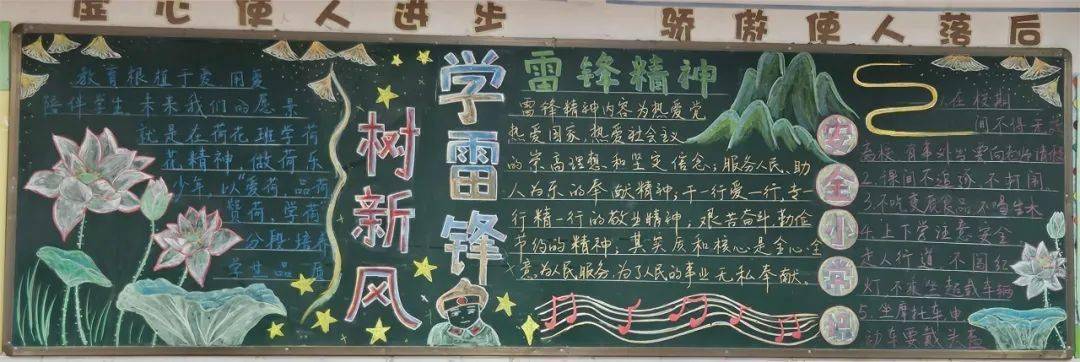 虚心使人进步
骄傲使人落后
教育根植于爱 用爱
陪伴学生 未来我们的愿景
就是在荷花班学荷
花精神 做荷乐
少年 以“爱荷 品荷
赞荷 学荷
分段 培养
学生品质
树新风
学雷锋
雷锋精神
雷锋精神内容为热爱党
热爱国家 热爱社会主义
的崇高理想和坚定信念;服务人民、助
人为乐的奉献精神;干一行爱一行,专一
行精一行的敬业精神;艰苦奋斗勤俭
节约的精神;其实质和核心是全心全
意为人民服务,为了人民的事业无私奉献。
安全小常识
1.在校期
间不得无故
离校 有事外出要向老师请假
2.课间不追逐 不打闹
3.不吃变质食品 不喝生水
4.上下学注意安全
走人行道 不闯红
灯 不乘坐超载车辆
5.坐摩托车电
动车要戴头盔